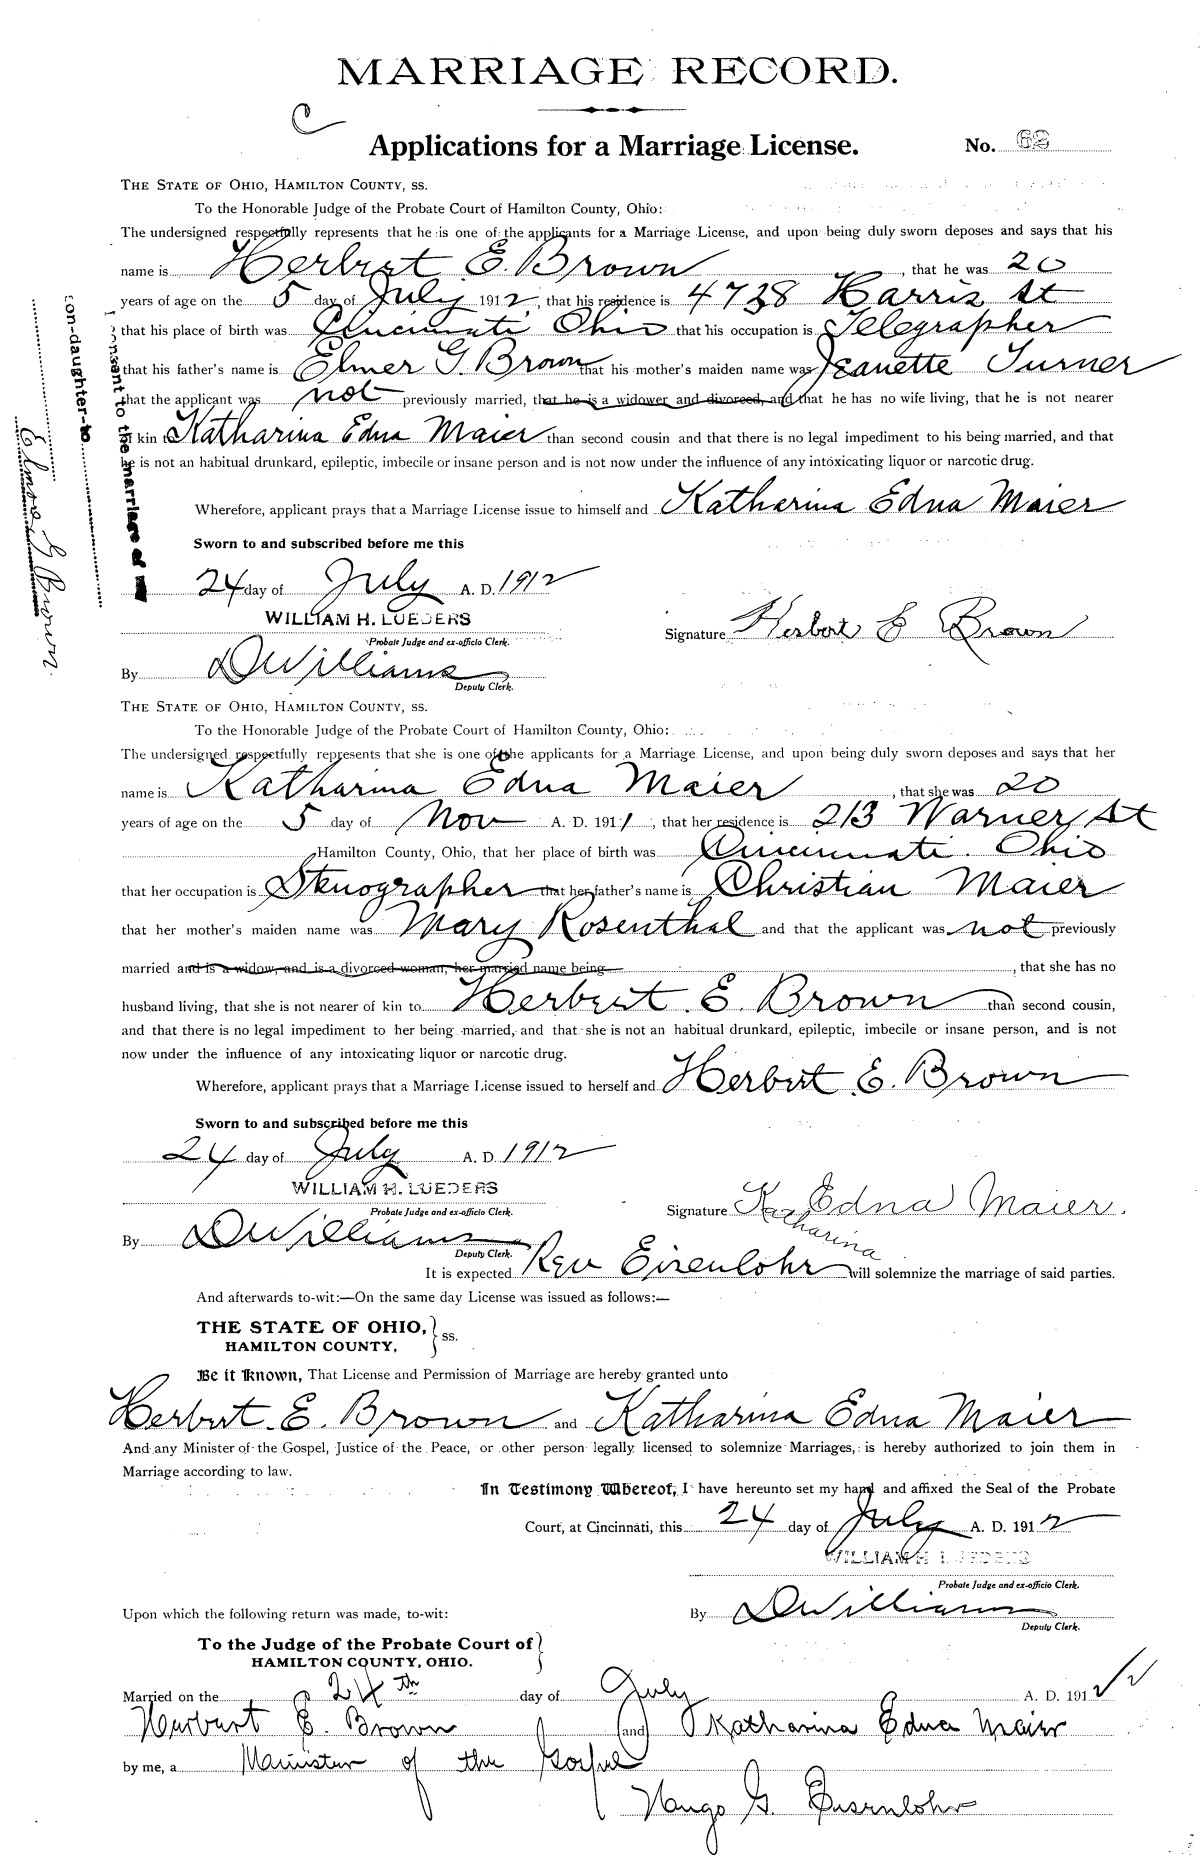 MARRIAGE RECORD.
C
Applications for a Marriage License. No. 62
THE STATE OF OHIO, HAMILTON COUNTY, ss.
To the Honorable Judge of the Probate Court of Hamilton County, Ohio:
The undersigned respectfully represents that he is one of the applicants for a Marriage License, and upon being duly sworn deposes and says that his
name is Herbert E. Brown, that he was 20
years of age on the 5 day of July 1912, that his residence is 4738 Harris St
that his place of birth was Cincinnati Ohio that his occupation is Telegrapher
that his father's name is Elmer G. Brown that his mother's maiden name was Jeanette Turner
that the applicant was not previously married, that he is a widower and divorced, and that he has no wife living, that he is not nearer
of kin t Katharina Edna Maier than second cousin and that there is no legal impediment to his being married, and that
he is not an habitual drunkard, epileptic, imbecile or insane person and is not now under the influence of any intoxicating liquor or narcotic drug.
Wherefore, applicant prays that a Marriage License issue to himself and Katharina Edna Maier
Sworn to and subscribed before me this
24 day of July A. D. 1912
WILLIAM H. LUEDERS
Probate Judge and ex-officio Clerk.
Signature Herbert E Brown
By D Williams
Deputy Clerk.
onsent to the marriage of m
son-daughter-to
Elmer G Brown.
THE STATE OF OHIO, HAMILTON COUNTY, ss.
To the Honorable Judge of the Probate Court of Hamilton County, Ohio:
The undersigned respectfully represents that she is one of the applicants for a Marriage License, and upon being duly sworn deposes and says that her
name is Katharina Edna Maier, that she was 20
years of age on the 5 day of Nov A. D. 1911, that her residence is 213 Warner St
Hamilton County, Ohio, that her place of birth was Cincinnati. Ohio
that her occupation is Stenographer that her father's name is Christian Maier
that her mother's maiden name was Mary Rosenthal and that the applicant was not previously
married and is a widow, and is a divorced woman, her married name being, that she has no
husband living, that she is not nearer of kin to Herbert. E. Brown than second cousin,
and that there is no legal impediment to her being married, and that she is not an habitual drunkard, epileptic, imbecile or insane person, and is not
now under the influence of any intoxicating liquor or narcotic drug.
Wherefore, applicant prays that a Marriage License issued to herself and Herbert E. Brown
Sworn to and subscribed before me this
24 day of July A. D. 1912
WILLIAM H. LUEDERS
Probate Judge and ex-officio Clerk.
Signature Katharina Edna Maier.
By D Williams
Deputy Clerk.
It is expected Rev Eisenlohr will solemnize the marriage of said parties.
And afterwards to-wit:—On the same day License was issued as follows:—
THE STATE OF OHIO,
HAMILTON COUNTY, } ss.
Be it Known, That License and Permission of Marriage are hereby granted unto
Herbert. E. Brown and Katharina Edna Maier
And any Minister of the Gospel, Justice of the Peace, or other person legally licensed to solemnize Marriages, is hereby authorized to join them in
Marriage according to law.
In Testimony Whereof, I have hereunto set my hand and affixed the Seal of the Probate
Court, at Cincinnati, this 24 day of July A. D. 1912
WILLIAM H LUEDERS
Probate Judge and ex-officio Clerk.
By D Williams
Deputy Clerk.
Upon which the following return was made, to-wit:
To the Judge of the Probate Court of
HAMILTON COUNTY, OHIO. }
Married on the 24th day of July A. D. 1912
Herbert E. Brown and Katharina Edna Maier
by me, a Minister of the Gospel
Hugo G. Eisenlohr